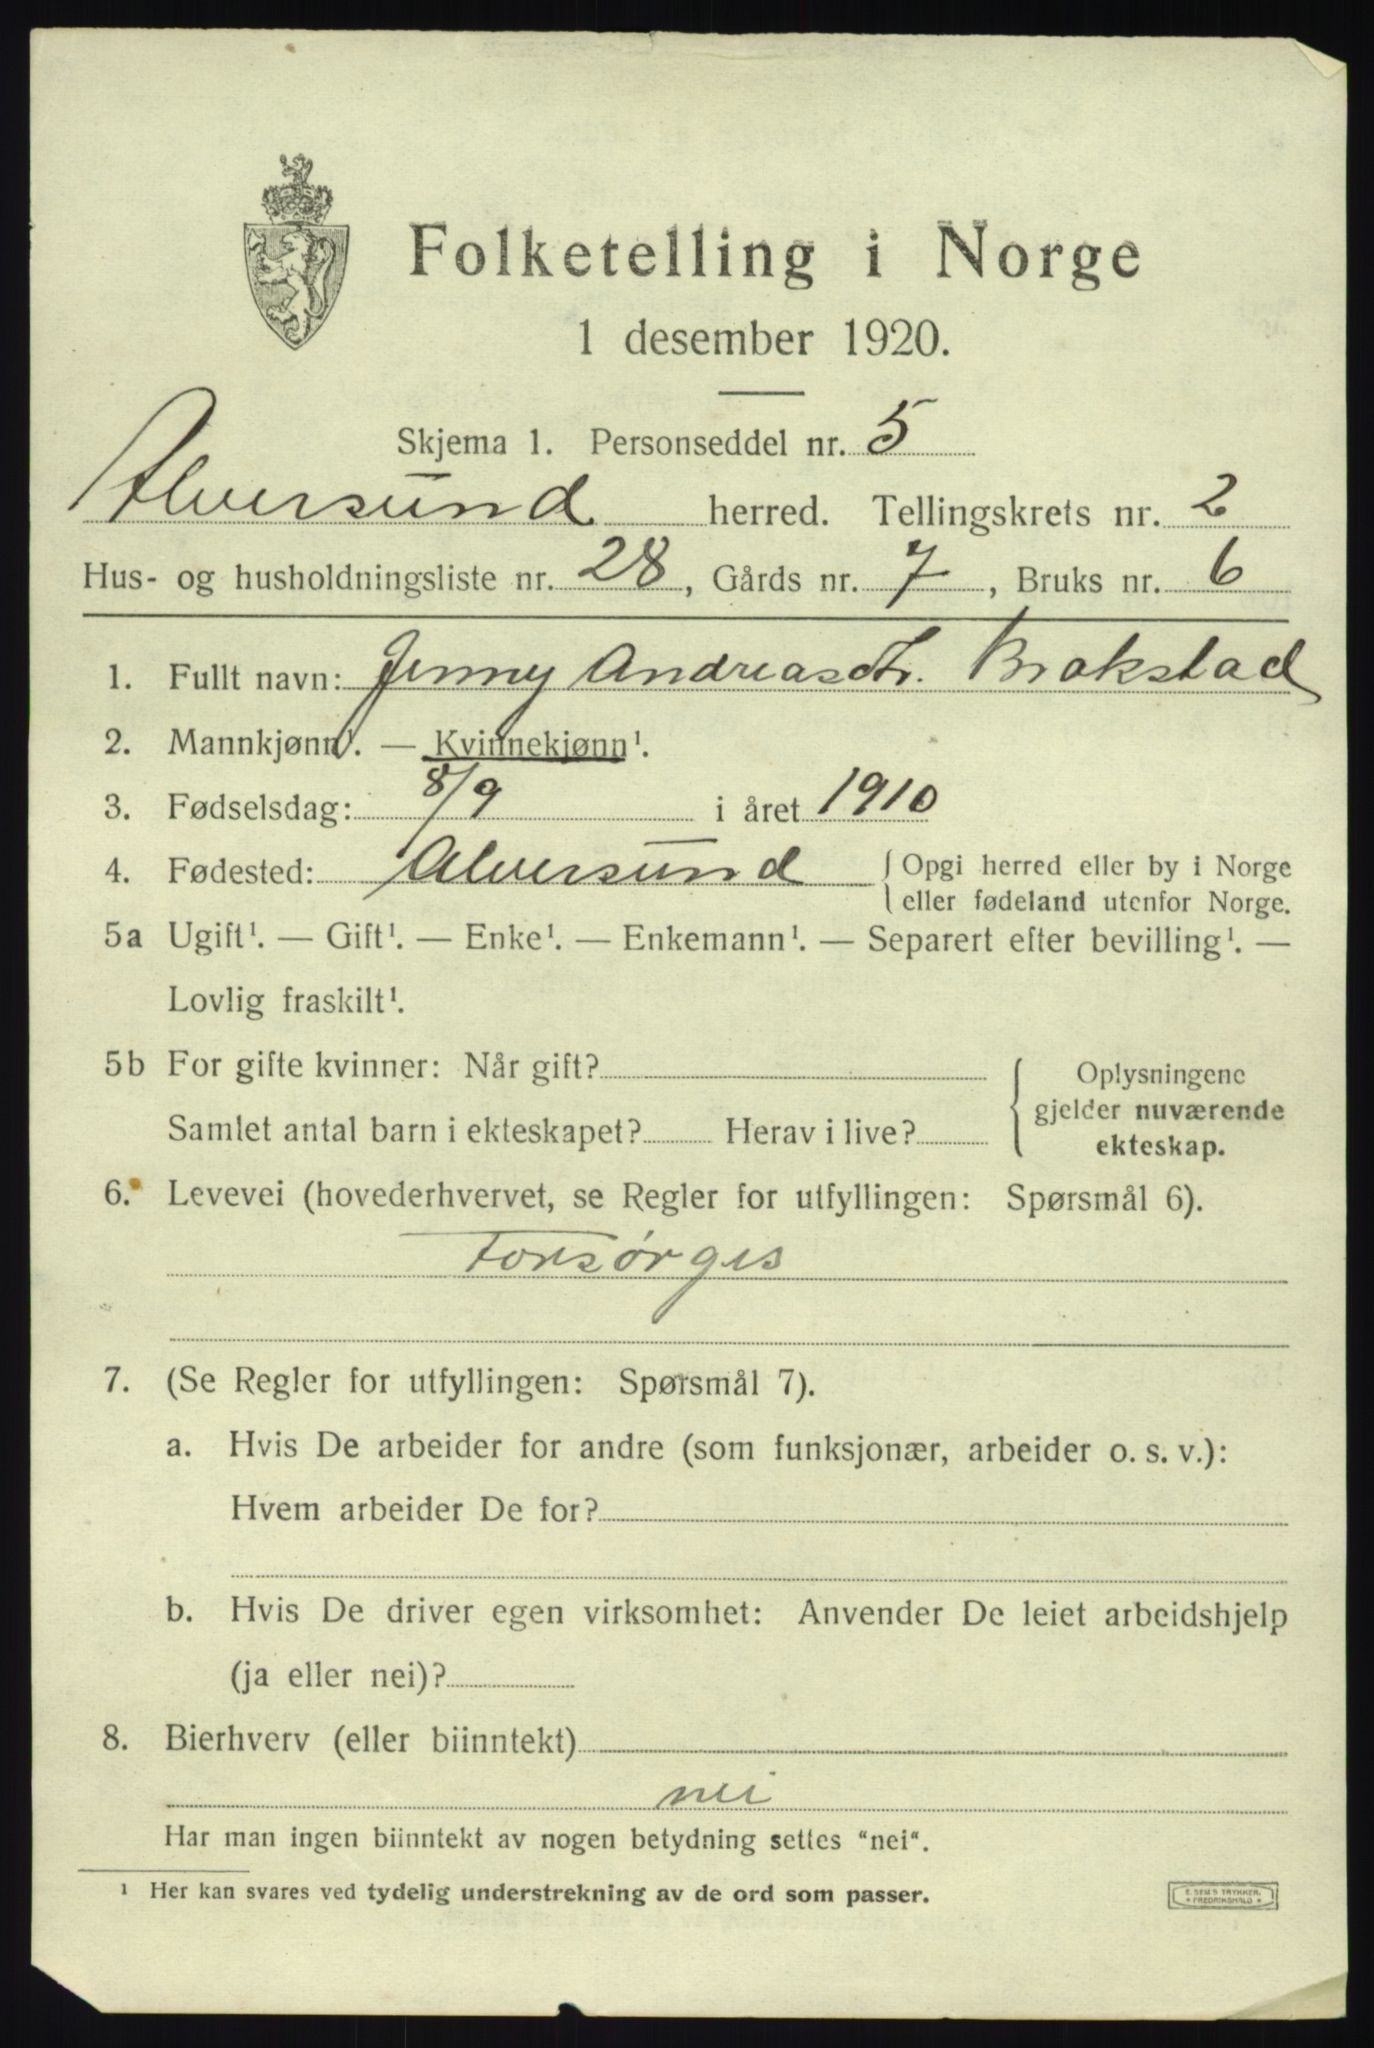 Folketelling i Norge
1 desember 1920.
Skjema 1. Personseddel nr. 5
Alversund herred. Tellingskrets nr. 2
Hus- og husholdningsliste nr. 28, Gårds nr. 7, Bruks nr. 6
1. Fullt navn: Jenny Andreasdtr. Brakstad
2. Mannkjønn¹. — Kvinnekjønn¹.
3. Fødselsdag: 8/9 i året 1910
4. Fødested: Alversund { Opgi herred eller by i Norge
eller fødeland utenfor Norge.
5a Ugift¹. — Gift¹. — Enke¹. — Enkemann¹. — Separert efter bevilling¹. —
Lovlig fraskilt¹.
5b For gifte kvinner: Når gift?
Samlet antal barn i ekteskapet? Herav i live?
{ Oplysningene
gjelder nuværende
ekteskap.
6. Levevei (hovederhvervet, se Regler for utfyllingen: Spørsmål 6).
Forsørges
7. (Se Regler for utfyllingen: Spørsmål 7).
a. Hvis De arbeider for andre (som funksjonær, arbeider o. s. v.):
Hvem arbeider De for?
b. Hvis De driver egen virksomhet: Anvender De leiet arbeidshjelp
(ja eller nei)?
8. Bierhverv (eller biinntekt)
nei
Har man ingen biinntekt av nogen betydning settes “nei“.
¹ Her kan svares ved tydelig understrekning av de ord som passer.
E. SEM'S TRYKKERI
FREDRIKSHALD